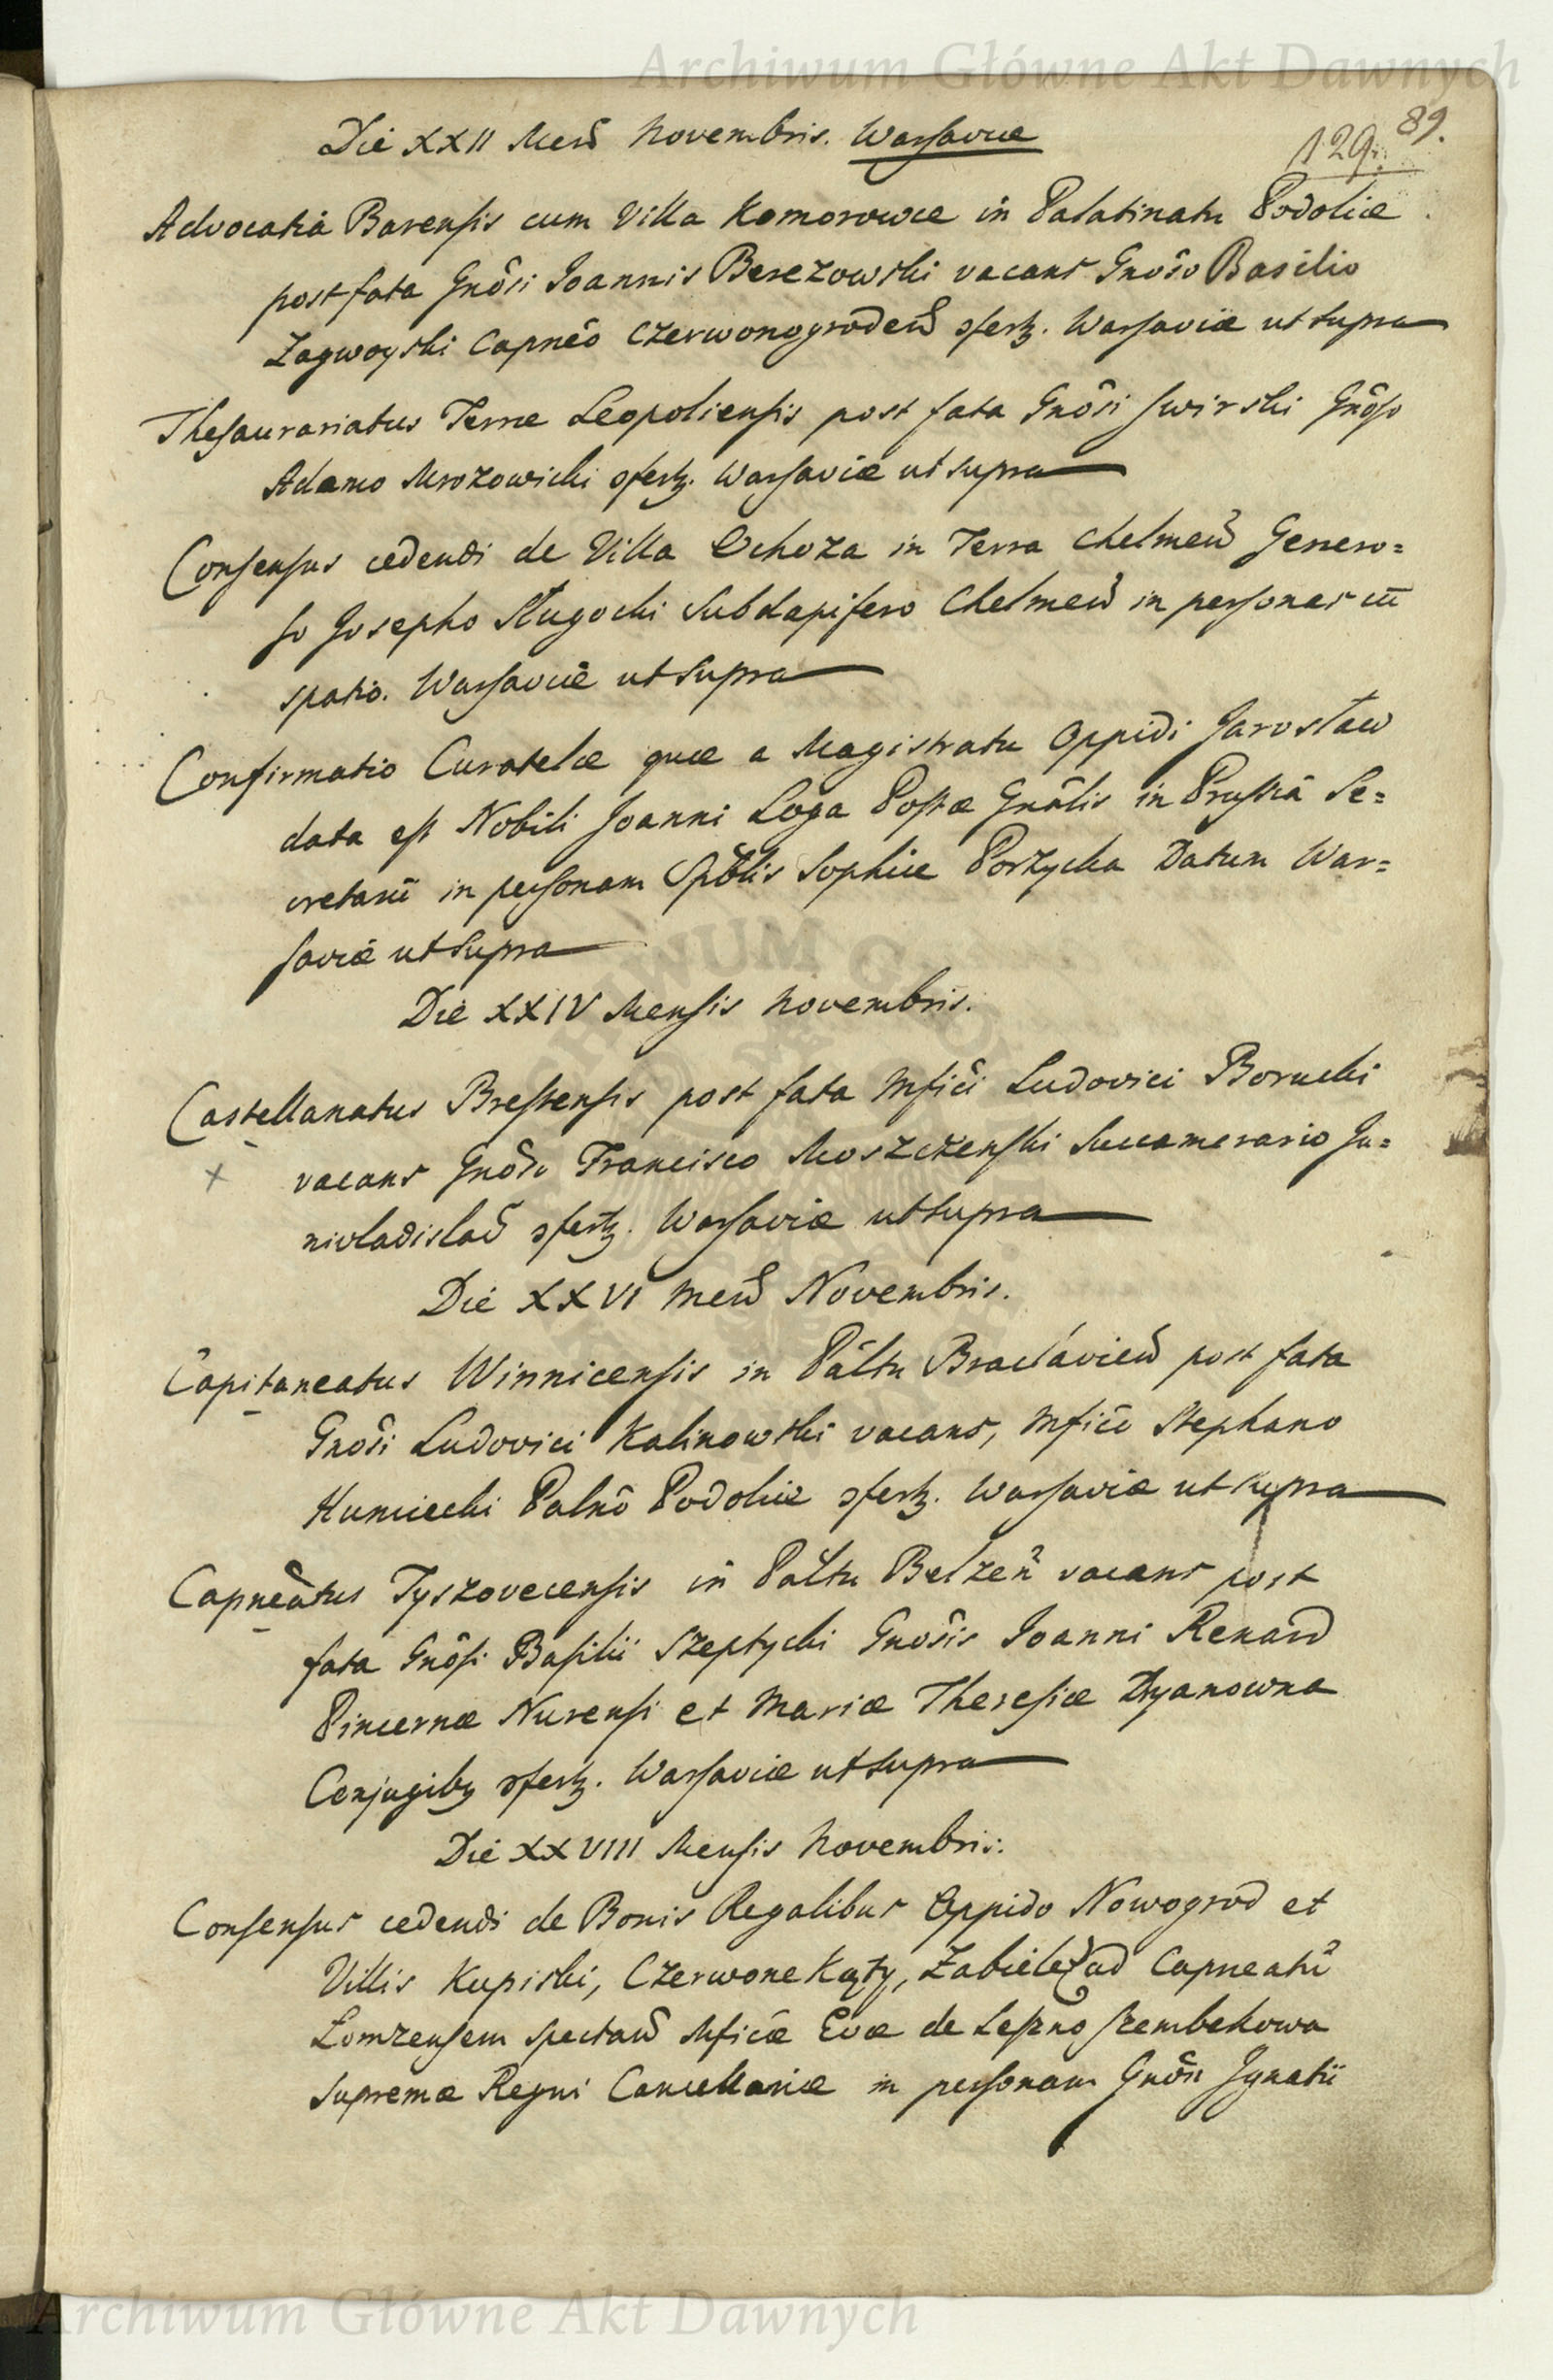 Archiwum Główne Akt Dawnych
89.
129.
Die XXII Menß Novembris. Warsaviæ
Advocatia Barensis cum Villa Komorowce in Palatinatu Podoliæ
post fata Gnôsi Joannis Berezowski vacans Gnôso Basilio
Zagwoyski Capnêo Czerwonogrodenß sfertz. Warsaviæ ut supra
Thesaurariatus Terræ Leopoliensis post fata Gnôsi Swirski Gnôso
Adamo Mrozowicki sfertz. Warsaviæ ut supra
Consensus cedendi de Villa Ochoza in Terra Chelmenß Genero=
so Josepho Długocki Subdapifero Chelmenß in personas cū
spatio. Warsaviæ ut supra
Confirmatio Curatelæ quæ a Magistratu Oppidi Jarosław
data est Nobili Joanni Loga Postæ Gnâlis in Prussiâ Se=
cretarii in personam Sophiæ Porzycka Datum War=
saviæ ut supra
Die XXIV Mensis Novembris.
Castellanatus Brestensis post fata Mfici Ludovici Borucki
vacans Gnôso Francisco Moszczenski Succamerario Ju=
niwladislaß sfertz. Warsaviæ ut supra
Die XXVI Menß Novembris.
Capitaneatus Winnicensis in Pâltu Bracłavienß post fata
Gnôsi Ludovici Kalinowski vacans, Mfico Stephano
Humiecki Palnô Podoliæ sfertz. Warsaviæ ut supra
Capneâtus Tyszovecensis in Pâltu Belzeñ vacans post
fata Gnôsi Basilii Szeptycki Gnôsis Joanni Renard
Pincernæ Nurensi et Mariæ Theresiæ Dyanowna
Conjugibq sfertz. Warsaviæ ut supra
Die XXVIII Mensis Novembris.
Consensus cedendi de Bonis Regalibus Oppido Nowogrod et
Villis Kupiski, Czerwone Kąty, Zabiele ad Capneatū
Łomzensem spectanß Mficæ Evæ de Leszno Szembekowa
Supremæ Regni Cancellariæ in personam Gnôsi Ignatii
Archiwum Główne Akt Dawnych